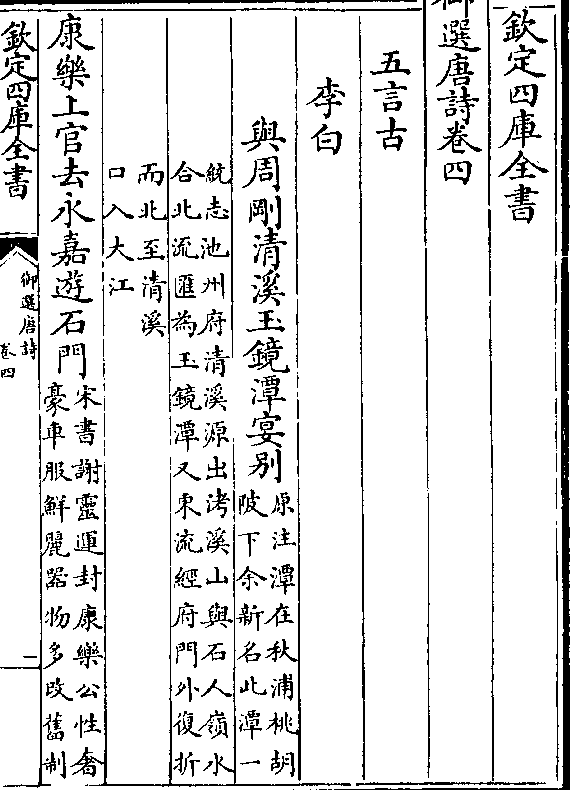 欽定四庫全書
御選唐詩卷四
五言古
李白
與周剛清溪玉鏡潭宴别
原注潭在秋浦桃胡
陂下余新名此潭一
統志池州府清溪源出洘溪山與石人嶺水
合北流匯為玉鏡潭又東流經府門外復折
而北至清溪
口入大江
康樂上官去永嘉遊石門
宋書謝靈運封康樂公性奢
豪車服鮮麗器物多改舊制
欽定四庫全書
御選唐詩
卷四
一